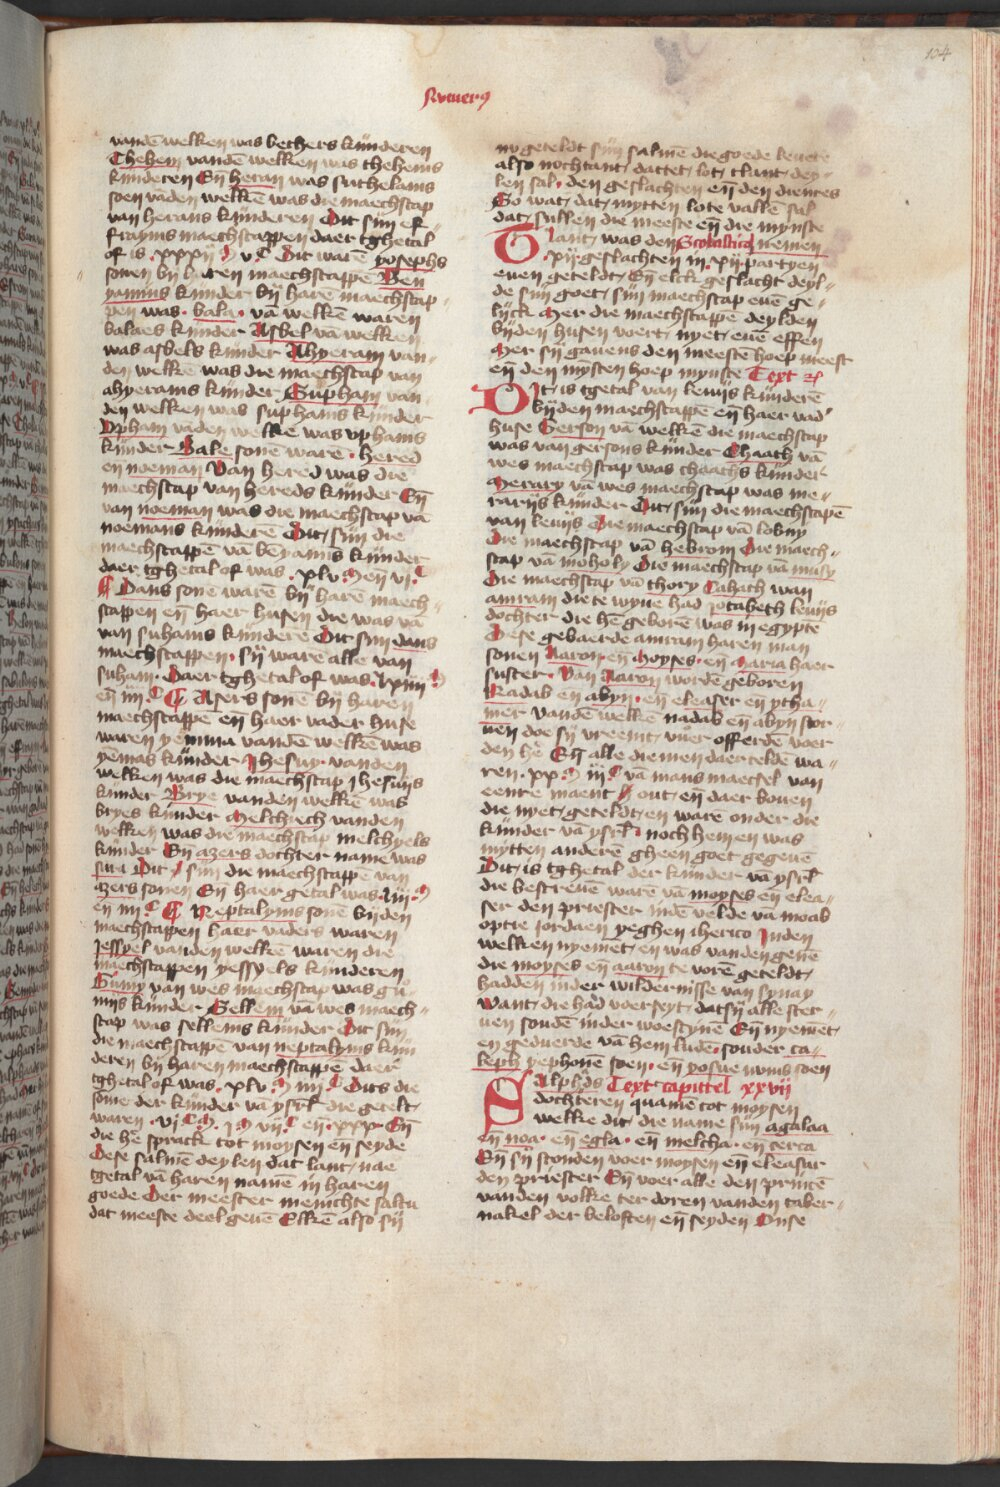 104
Numerus
vandē welken was bethers kinderen
Thehem vandē welken was thehems
kinderen En̄ heran was suthelams
soen vāden welkē was die maechscap
van herans kinderen Dit sijn ef
frayms maechscappen daer tghetal
of is .xxxij M v C Dit warē yosephs
sonen bij haren maechscappē Ben
yamins kinder bij harē maechscap
pen was bala vā welkē waren
balaes kinder Asbel vā welken
was asbels kinder Ahyeram van
den welken was die maechscap van
ahyerams kinder Supham van
den welken was suphams kinder
Upham vāden welkē was uphams
kinder Bale sone ware hered
en noeman Van hered was die
maechscap van hereds kinder En̄
van noeman was die maechscap vā
noemans kinderē Dit sijn die
maechscappē vā bēyamīs kinder
daer tghetal of was .xlv M en̄ vi C
Dans sone warē bij harē maech
scappen en̄ haer husen die was vā
van suhams kinderē Dit sijn dans
maechscappen sij warē alle van
suham Daer tghetal of was lxiiij M
en̄ iiij C Asers sonē bij haren
maechscappē en̄ haer vader huse
waren yēmna vandē welkē was
yēmas kinder Jhesuy vanden
welken was die maechscap Jhesuijs
kinder Brye vanden welkē was
bryes kinder Melchyech vanden
welken was die maechscap melchyels
kinder En̄ azers dochter name was
sara Dit sijn die maechscappē van
azers sonen En̄ haer getal was liij M
en̄ iiij C Neptalyms sonē bij den
maechscappen haer vaders waren
Jessyel vanden welkē waren die
maechscappen yessyels kinderen
Guny van wes maechscap was gu
nijs kinder Sellem vā wes maech
scap was sellems kinder Dit sijn
die maechscappē van neptalyms kin
deren bij haren maechscappē daer
tghetal of was .xlv M iiij C Dits die
some der kinder vā ysrl die getelt
waren .vi C M. j M vij C en̄ xxx En̄
die hē sprack tot moysen en̄ seyde
Dese salmē deylen dat lant nae
tgetal vā haren namē in haren
goede Der meester menichte saltu
dat meeste deel geuē Elkē also sij
nv geteldt sijn salmē die goede leuere
also nochtant dattet lot tlant dey
len sal den geslachten en̄ den dientes
So wat dat mytten lote vallē sal
dat sullen die meeste en̄ die mynste
Tlant was den Scolastica nemen
.xij geslachten in .xij partyen
euen geteldt En̄ elck geslacht deyl
de sijn goet sijn maechscap euē ge
lijck Mer die maechscappē deylden
bijden husen voert nyet euē effen
Mer sij gauens den meestē hoep meest
en̄ den mysten hoep mynste Text
Dit is tgetal van leuijs kinderē
bijden maechscappē en̄ haer vad'
huse Gerson vā welkē die maechscap
was van gersons kinder Chaath vā
wes maechscap was chaaths kinder
Merary vā wes maechscap was me
rarijs kinder Dit sijn die maechscapē
van leuijs Die maechscap vā lobny
Die maechscap vā hebrom Die maech
scap vā moholy Die maechscap vā musy
Die maechscap vā thory Cahath wan
amram die te wyue had Jotabeth leuijs
dochter die hē geborē was in egypte
Dese gebaerde amram haren man
sonen Aaron en̄ Moyses en̄ Maria haer
suster Van Aaron wordē geboren
Nadab en̄ abyn en̄ eleaser en̄ ytha
mer vandē welkē nadab en̄ abyn stor
uen doe sij vreemt vuer offerdē voer
den hē En̄ alle die men daer telde wa
ren .xx M iij C vā mans maectsel van
eenre maent out en̄ daer bouen
die nyet geteldt en̄ ware onder die
kinder vā ysrl noch hemen was
mytten anderē gheen goet gegeuē
Dit is tghetal der kinder vā ysrl
die bescreuē warē vā moyses en̄ elea
ser den priester inde velde vā moab
op die iordaen yeghen iherico Inden
welken nyemet en was vanden genē
die moyses en̄ aaron te vorē geteldt
hadden inder wildernisse van synay
Want die had voerseyt dat sij alle ster
uen soudē inder woestynē En̄ nyemēt
en geduerde vā hem ludē sonder ca
leph yephonē soen en̄ yosue nums soen
Salphds Text capittel xxvij
dochteren quamē tot moysen
welke dit die name sijn agalaa
en̄ noa en̄ egla en̄ melcha en̄ terca
En̄ sij stonden voer moysen en̄ eleasar
den priester En̄ voer alle den princē
vanden volke ter doren vanden taber
nakel der beloften en̄ seyden Onse